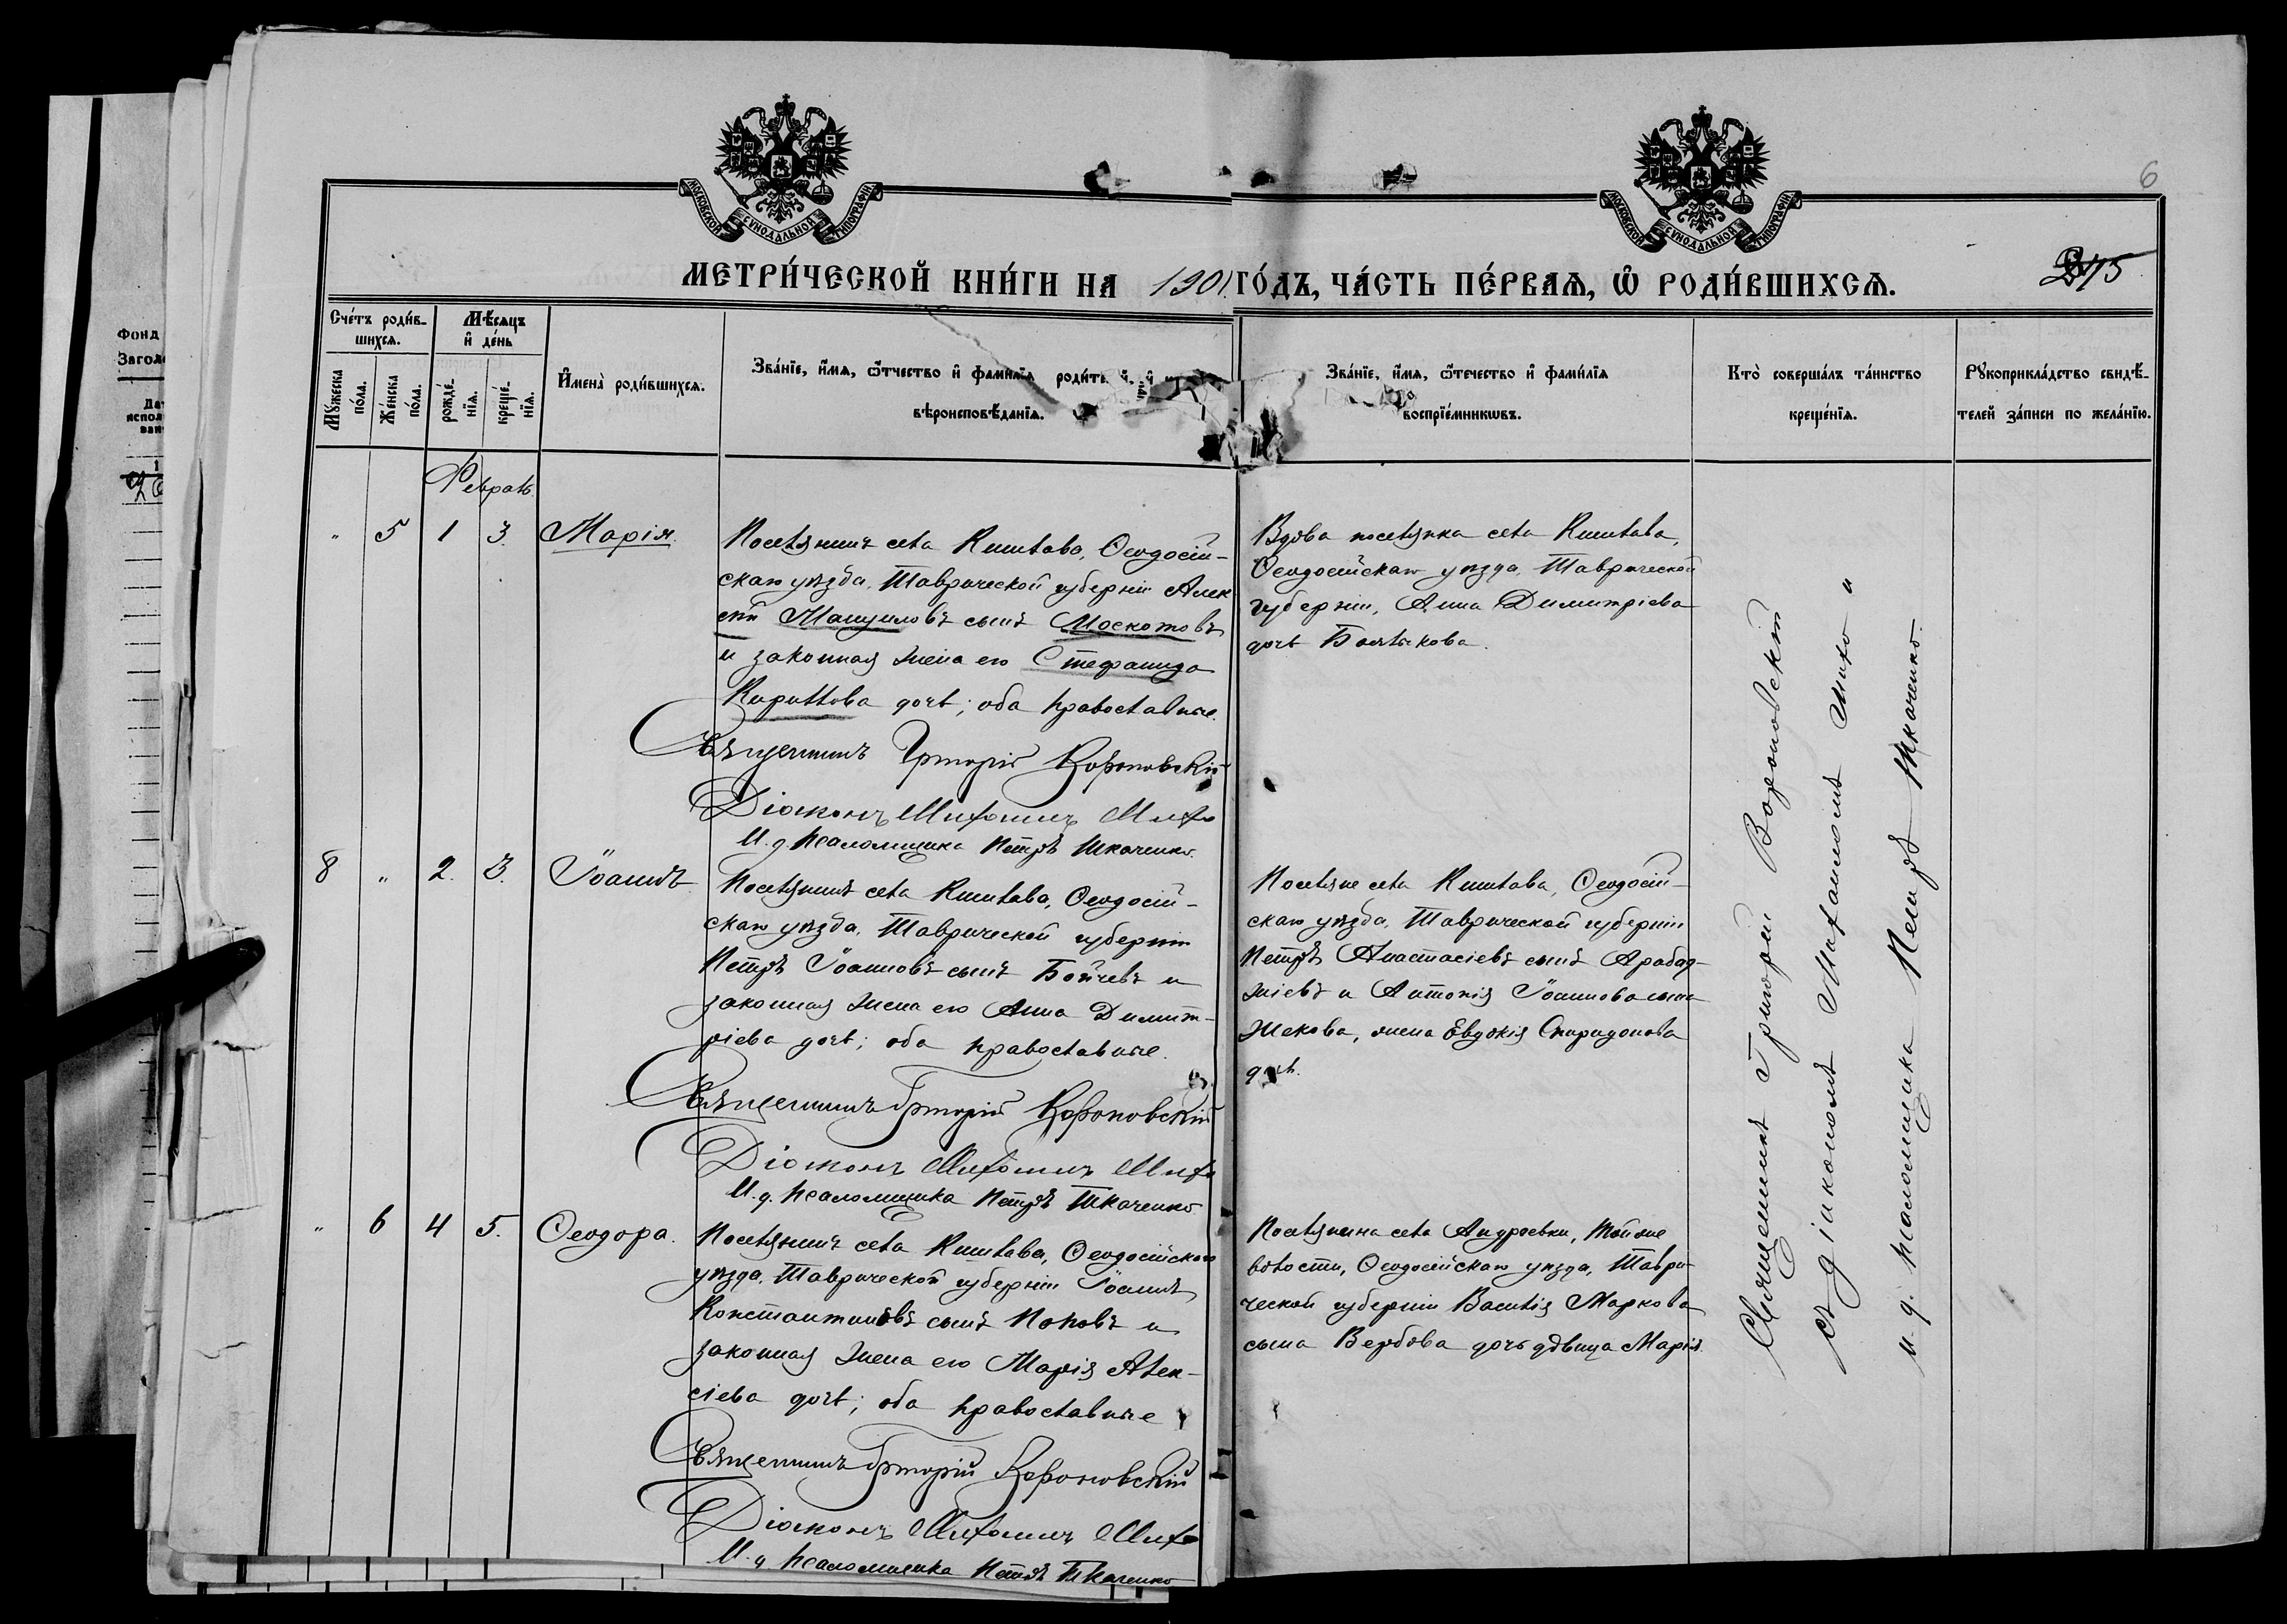 МОСКОВСКОЙ СѴНОДАЛЬНОЙ ТИПОГРАФІИ
МОСКОВСКОЙ СѴНОДАЛЬНОЙ ТИПОГРАФІИ
6
МЕТРИ́ЧЕСКОЙ КНИ́ГИ НА 1901 ГО́ДЪ, ЧА́СТЬ ПЕ́РВАѦ, Ѽ РОДИ́ВШИХСѦ.
Фонд
Счéтъ роди́в-
шихсѧ.
Мѣ́сѧцъ
и҆ де́нь
Мꙋ́жеска
по́ла.
Же́нска
по́ла.
рожде́-
нїѧ.
креще́-
нїѧ.
И҆мена̀ роди́вшихсѧ.
Зва́нїе, и҆́мѧ, ѻ҆́тчество и҆ фами́лїѧ
вѣроисповѣ́данїѧ.
Зва́нїе, и҆́мѧ, ѻ҆те́чество и҆ фами́лїѧ
воспрїе́мникѡвъ.
Кто̀ соверша́лъ та́инство
креще́нїѧ.
Рꙋкоприкла́дство свидѣ́-
телей за́писи по жела́нїю.
Февраль
" 5 1 3. Марія.
Поселянинъ села Кишлава, Ѳеодосій-
скаго уѣзда, Таврической губерніи Алек
сѣй Мануиловъ сынъ Москотовъ
и законная жена его Стефанида
Кириллова дочь; оба православные.
Священникъ Григорій Вороновскій
Діаконъ Михаилъ Михо
И. д. псаломщика Петръ Ткаченко.
Вдова поселянка села Кишлава,
Ѳеодосійскаго уѣзда, Таврической
губерніи, Анна Димитріева
дочь Болтыкова.
8 " 2. 3. Іоаннъ
Поселянинъ села Кишлава, Ѳеодосій-
скаго уѣзда, Таврической губерніи
Петръ Іоанновъ сынъ Бойчевъ и
законная жена его Анна Димит-
ріева дочь; оба православные.
Священникъ Григорій Вороновскій
Діаконъ Михаилъ Михо
И. д. псаломщика Петръ Ткаченко
Поселяне села Кишлава, Ѳеодосій-
скаго уѣзда, Таврической губерніи
Петръ Анастасіевъ сынъ Арабад-
жіевъ и Антонія Іоаннова сына
Жекова, жена Евдокія Спиридонова
дочь.
" 6 4 5. Ѳеодора.
Поселянинъ села Кишлава, Ѳеодосійскаго
уѣзда, Таврической губерніи Іоаннъ
Константиновъ сынъ Поповъ и
законная жена его Марія Алек-
сіева дочь; оба православные
Священникъ Григорій Вороновскій
Діаконъ Михаилъ Михо
И. д. псаломщика Петръ Ткаченко
Поселянина села Андреевки, Той же
волости, Ѳеодосійскаго уѣзда, Таври-
ческой губерніи Василія Маркова
сына Вербова дочь дѣвица Марія.
Священникъ Григорій Вороновскій
съ діакономъ Михаиломъ Михо и
и. д. псаломщика Петръ Ткаченко.